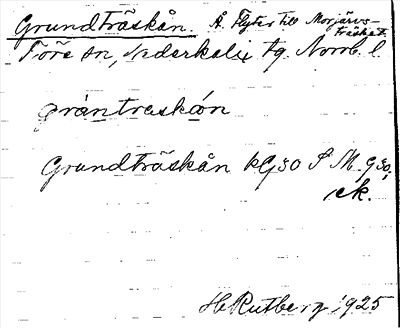 Grundträskån. Å. Flyter till Morjärvs-
träsket.
Töre sn, Nederkalix tg. Norrb. l.
gràntraskón
Grundträskån kG30 S M. G30,
ck.
H Rutberg 1925